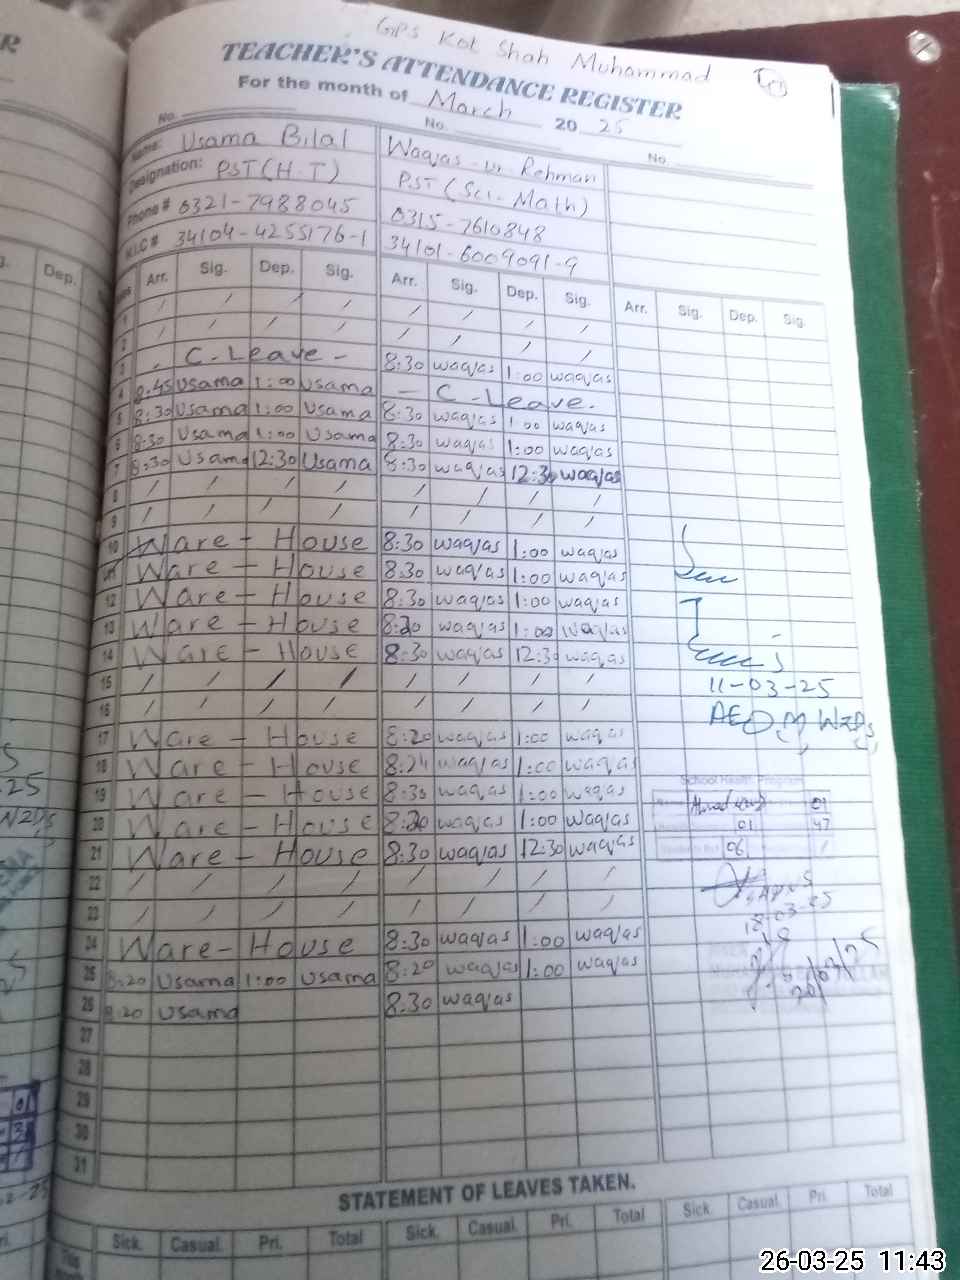 GPS Kot Shah Muhammad
TEACHER'S ATTENDANCE REGISTER
For the month of March 20 25
No. No. No.
Name: Usama Bilal Waqas ur Rehman
Designation: PST(H.T) PST (Sci-Math)
Phone # 0321-7988045 0315-7610848
N.I.C # 34104-4255176-1 34101-6009091-9
Arr. Sig. Dep. Sig. Arr. Sig. Dep. Sig. Arr. Sig. Dep. Sig.
1 / / / / / / / /
2 / / / / / / / /
3 C-Leave - 8:30 waqas 1:00 waqas
4 8:45 Usama 1:00 Usama - C-Leave.
5 8:30 Usama 1:00 Usama 8:30 waqas 1:00 waqas
6 8:30 Usama 1:00 Usama 8:30 waqas 1:00 waqas
7 8:30 Usama 12:30 Usama 8:30 waqas 12:30 waqas
8 / / / / / / / /
9 / / / / / / / /
10 Ware-House 8:30 waqas 1:00 waqas
11 Ware-House 8:30 waqas 1:00 waqas
12 Ware-House 8:30 waqas 1:00 waqas
13 Ware-House 8:20 waqas 1:00 waqas
14 Ware-House 8:30 waqas 12:30 waqas
15 / / / / / / / /
11-03-25
16 / / / / / / / /
AEO
17 Ware-House 8:20 waqas 1:00 waqas
18 Ware-House 8:21 waqas 1:00 waqas
School Health Program
19 Ware-House 8:30 waqas 1:00 waqas
01
20 Ware-House 8:20 waqas 1:00 waqas
01 47
21 Ware-House 8:30 waqas 12:30 waqas
06
22 / / / / / / / /
23 / / / / / / / /
18-03-25
24 Ware-House 8:30 waqas 1:00 waqas
25 8:20 Usama 1:00 Usama 8:20 waqas 1:00 waqas
26 8:20 Usama 8:30 waqas
27
28
29
30
31
STATEMENT OF LEAVES TAKEN.
Sick. Casual. Pri. Total Sick. Casual. Pri. Total Sick. Casual. Pri. Total
This
26-03-25 11:43